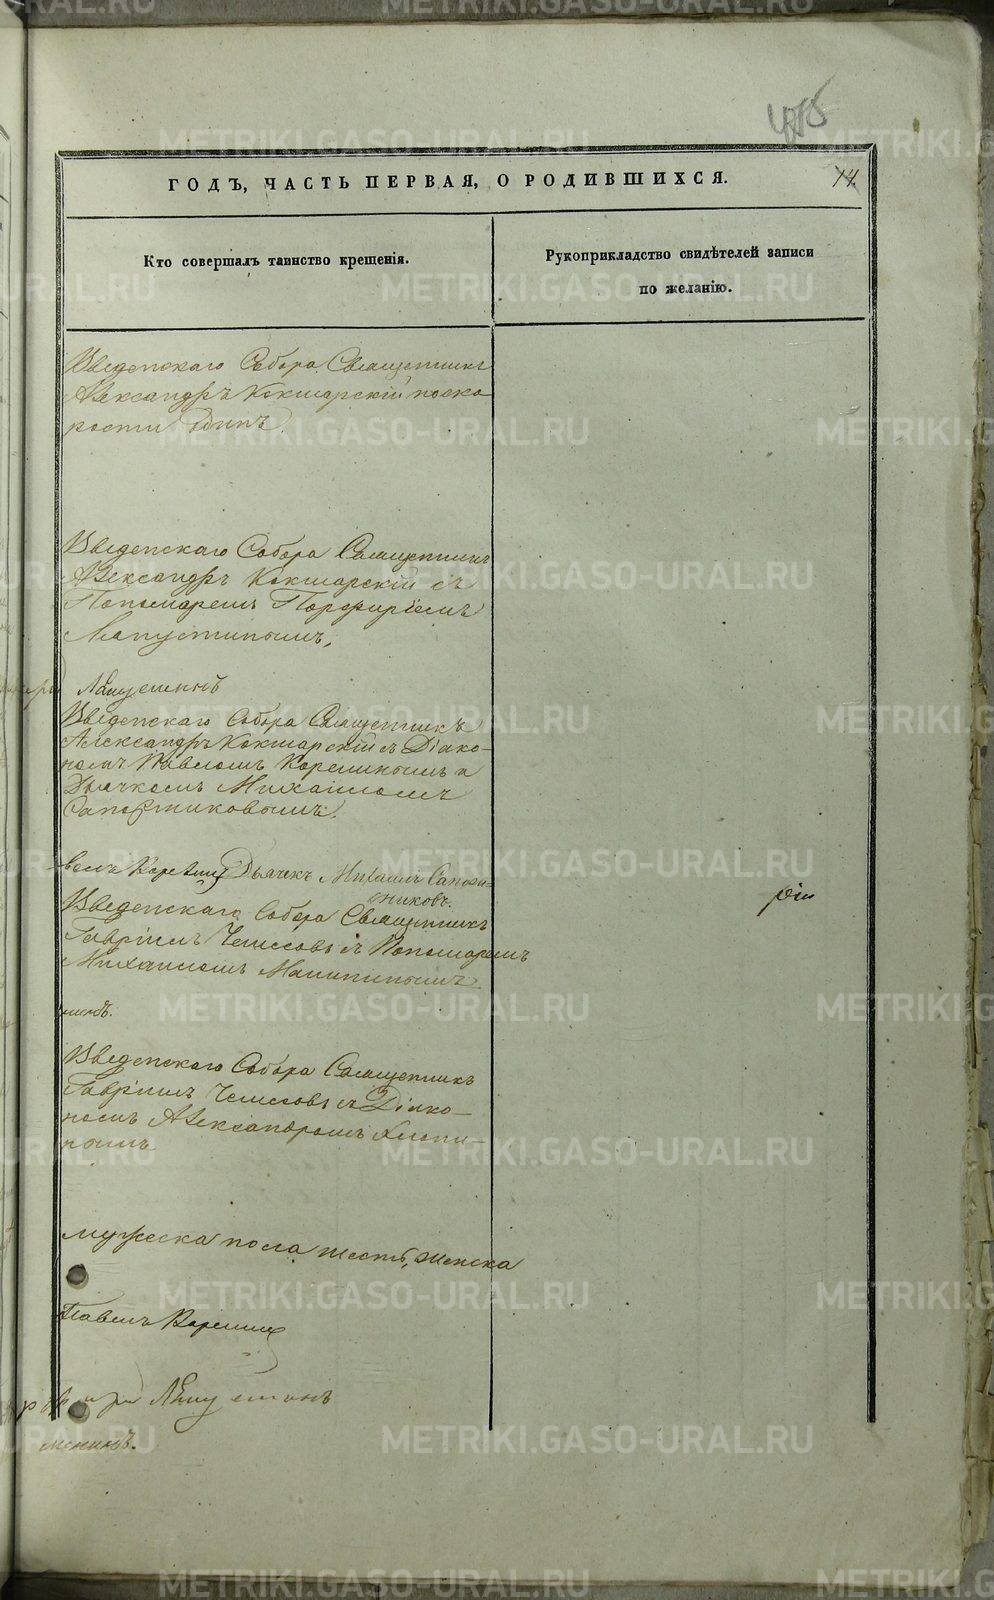 ГОДЪ, ЧАСТЬ ПЕРВАЯ, О РОДИВШИХСЯ.
14.
Кто совершалъ таинство крещенія.
Рукоприкладство свидѣтелей записи
по желанію.
Введенскаго Собора Священникъ
Александръ Кокшарскій поско-
рости
Введенскаго Собора Священникъ
Александръ Кокшарскій съ
Пономаремъ Порфиріемъ
Лапустинымъ.
Введенскаго Собора Священникъ
Александръ Кокшарскій съ Діако-
номъ Павломъ Корелинымъ и
Дьячкомъ Михаиломъ
Сапожниковымъ.
Дьячекъ Михаилъ Сапож-
никовъ.
Введенскаго Собора Священникъ
Гавріилъ съ Пономаремъ
Михаиломъ
Введенскаго Собора Священникъ
Гавріилъ съ Діако-
номъ Александромъ
нымъ
мужеска пола шесть, женска
Павелъ Корелин
METRIKI.GASO-URAL.RU